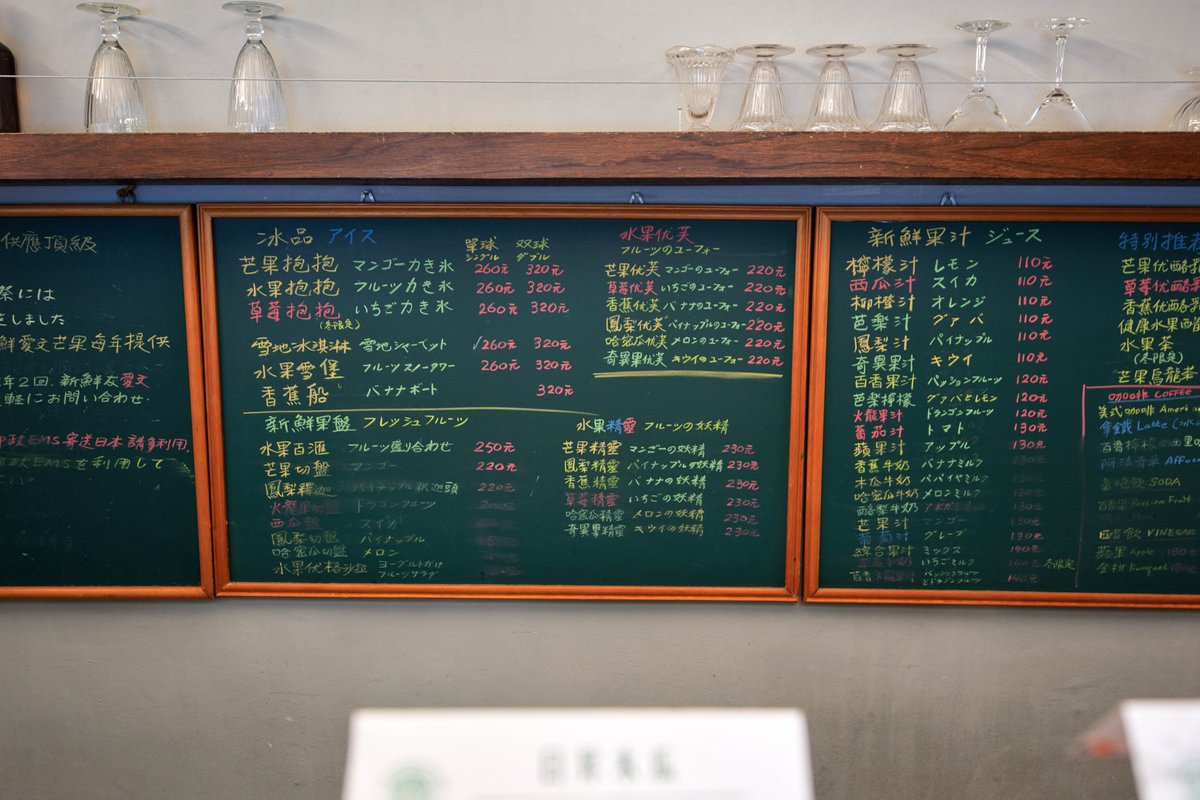 供應頂級
際には
をしました
鮮愛文芒果每年提供
年2回,新鮮な愛文
軽にお問い合わせ.
郵政EMS寄送日本 請多利用.
郵政EMSを利用して
冰品 アイス
單球 双球
シングル ダブル
芒果抱抱 マンゴーカき氷 260元 320元
水果抱抱 フルーツカき氷 260元 320元
草莓抱抱 いちごカき氷 260元 320元
(冬限定)
雪地冰淇淋 雪地シャーベット 260元 320元
水果雪堡 フルーツスノータワー 260元 320元
香蕉船 バナナボート 320元
新鮮果盤 フレッシュフルーツ
水果百滙 フルーツ盛り合わせ 250元
芒果切盤 マンゴー 220元
鳳梨釋迦 パイナップル釈迦頭 220元
火龍果切盤 ドラゴンフルーツ
西瓜盤 スイカ
鳳梨切盤 パイナップル
哈密瓜切盤 メロン
水果优格沙拉 ヨーグルトがけ
フルーツサラダ
水果优芙
フルーツのユーフォー
芒果优芙 マンゴーのユーフォー 220元
草莓优芙 いちごのユーフォー 220元
香蕉优芙 バナナのユーフォー 220元
鳳梨优芙 パイナップルのユーフォー 220元
哈密瓜优芙 メロンのユーフォー 220元
奇異果优芙 キウイのユーフォー 220元
水果精靈 フルーツの妖精
芒果精靈 マンゴーの妖精 230元
鳳梨精靈 パイナップルの妖精 230元
香蕉精靈 バナナの妖精 230元
草莓精靈 いちごの妖精 230元
哈密瓜精靈 メロンの妖精 230元
奇異果精靈 キウイの妖精 230元
新鮮果汁 ジュース
檸檬汁 レモン 110元
西瓜汁 スイカ 110元
柳橙汁 オレンジ 110元
芭樂汁 グァバ 110元
鳳梨汁 パイナップル 110元
奇異果汁 キウイ 110元
百香果汁 パッションフルーツ 120元
芭樂檸檬 グァバとレモン 120元
火龍果汁 ドラゴンフルーツ 120元
蕃茄汁 トマト 130元
蘋果汁 アップル 130元
香蕉牛奶 バナナミルク
木瓜牛奶 パパイヤミルク 130元
哈密瓜牛奶 メロンミルク 130元
酪梨牛奶 アボガドミルク 130元
芒果汁 マンゴー 130元
葡萄汁 グレープ 130元
綜合果汁 ミックス 140元
草莓牛奶 いちごミルク 140元 冬限定
百香火龍果汁 パッションフルーツ
とドラゴンフルーツ 140元
特別推荐
芒果优酪
草莓优酪
香蕉优酪
健康水果
水果茶
(冬限定)
芒果烏龍茶
咖啡 COFFEE
美式咖啡 Ameri
拿鐵 Latte
Affoga
SODA
Passion Fruit
VINEGAR
蘋果 Apple 180元
金桔 Kumquat 180元